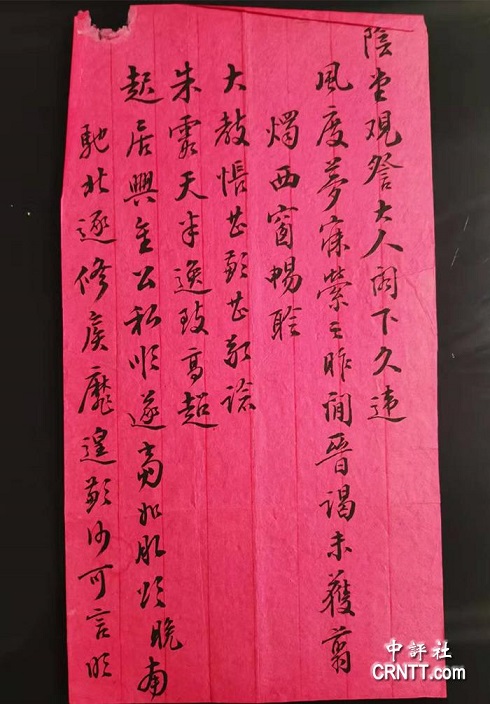 陰堂觀詧大人閣下久違
風度夢寐縈之昨詣晉謁未獲翦
燭西窗暢聆
大教悵甚歉甚敬諗
朱霞天半逸致高超
起居興至公私順遂為如所頌晚南
馳北逐修候靡遑歉何可言昨
中評社
CRNTT.com